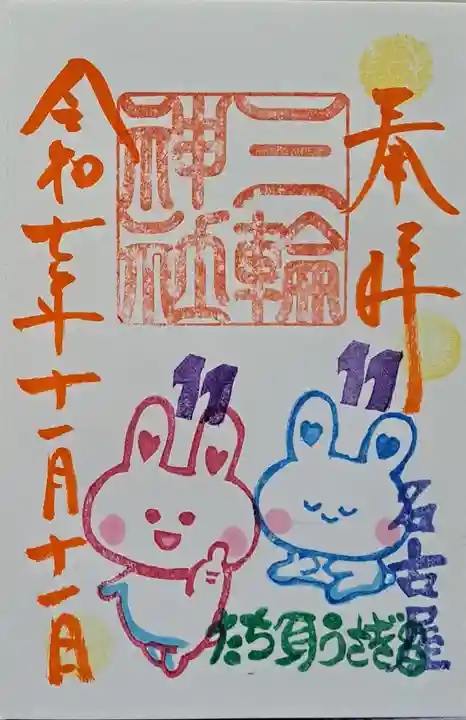 奉拝
三輪
神社
11 11
名古屋
うさぎ
令和七年十一月十一日